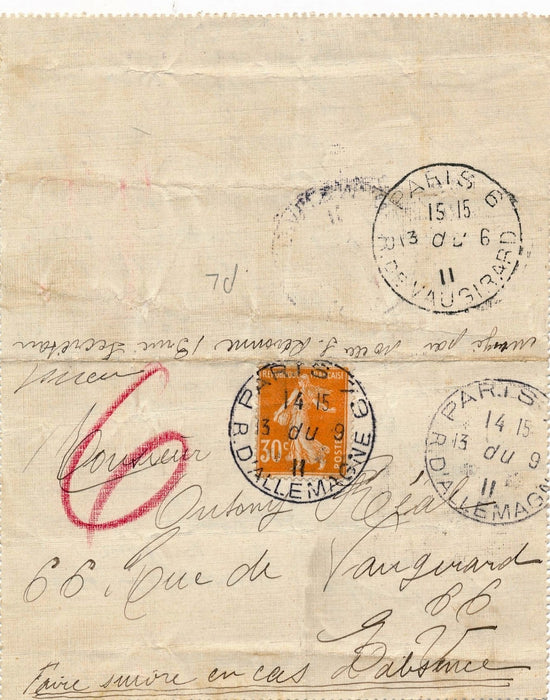 PARIS 6
15 15
13 DU 6
11
R. DE VAUGIRARD
PL
par
rue Secrétan
6
PARIS 19
14 15
13 DU 9
11
R. D'ALLEMAGNE
RÉPUBLIQUE FRANÇAISE
30c
POSTES
PARIS 19
14 15
13 DU 9
11
R. D'ALLEMAGNE
Monsieur
Antony Réal
66. Rue de Vaugirard
66
E. V.
Faire suivre en cas d'absence